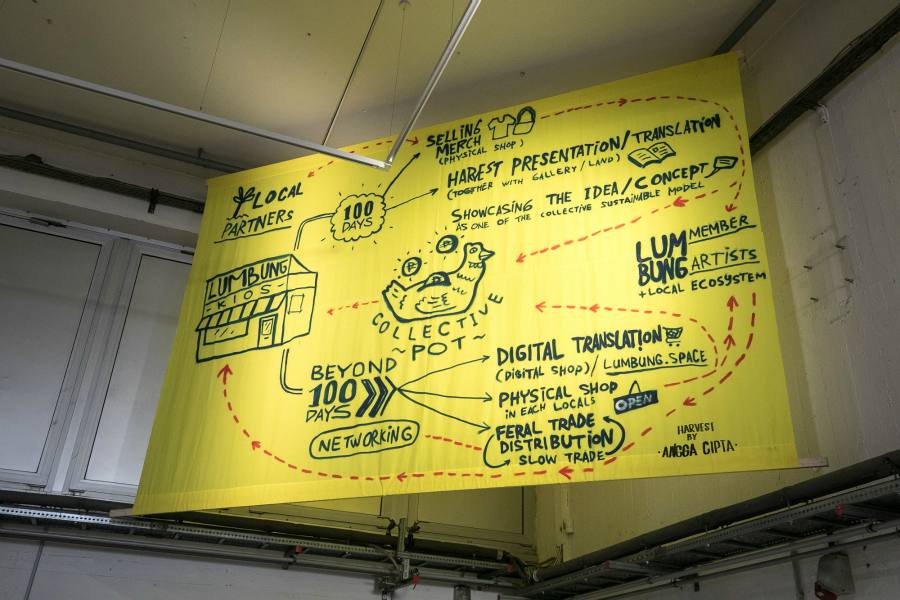 SELLING
MERCH
(PHYSICAL SHOP)
HAREST PRESENTATION/TRANSLATION
(TOGETHER WITH GALLERY/LAND)
SHOWCASING THE IDEA/CONCEPT
AS ONE OF THE COLLECTIVE SUSTAINABLE MODEL
LOCAL
PARTNERS
100
DAYS
LUMBUNG
-KIOS-
LUM
BUNG
MEMBER
ARTISTS
+LOCAL ECOSYSTEM
COLLECTIVE
~POT~
BEYOND
100
DAYS
NETWORKING
DIGITAL TRANSLATION
(DIGITAL SHOP)/LUMBUNG.SPACE
PHYSICAL SHOP
IN EACH LOCALS
OPEN
FERAL TRADE
DISTRIBUTION
SLOW TRADE
HARVEST
BY
·ANGGA CIPTA·